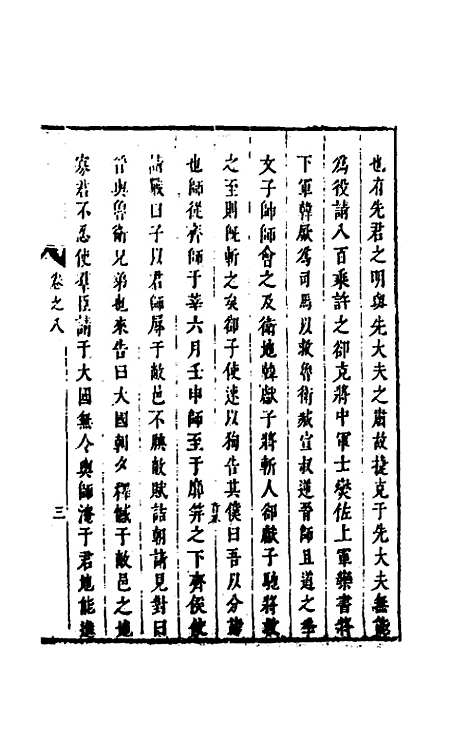 也有先君之明與先大夫之肅故捷克于先大夫無能
爲役請八百乘許之郤克將中軍士燮佐上軍欒書將
下軍韓厥爲司馬以救魯衛臧宣叔逆晉師且道之季
文子帥師會之及衛地韓獻子將斬人郤獻子馳將救
之至則既斬之矣郤子使速以狥告其僕曰吾以分謗
也師從齊師于莘六月壬申師至于靡筓之下齊侯使
請戰曰子以君師辱于敝邑不腆敝賦詰朝請見對曰
晉與魯衛兄弟也來告曰大國朝夕釋憾于敝邑之地
寡君不忍使羣臣請于大國無令輿師淹于君地能進
卷之八
三